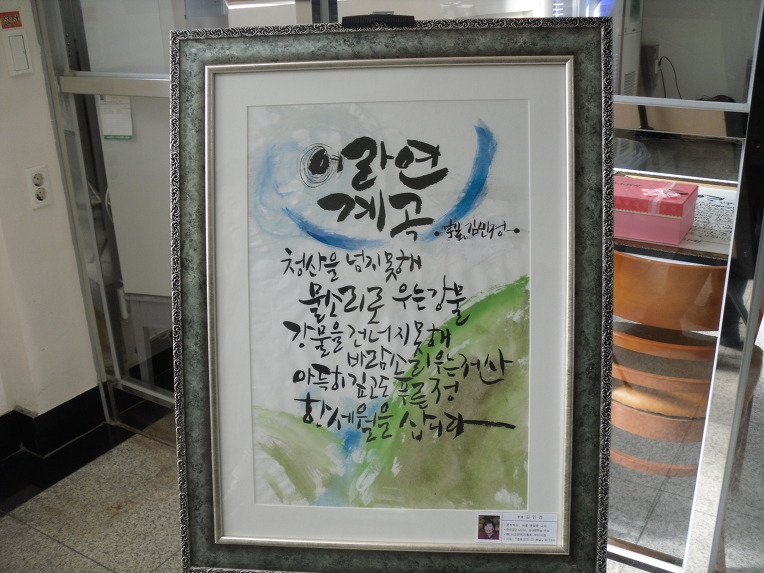 어라연
계곡
宇玄 김민정
청산을 넘지못해
물소리로 우는강물
강물을 건너지못해
바람소리우는저산
아득히 깊고도 푸른 정
한세월을 삽디다